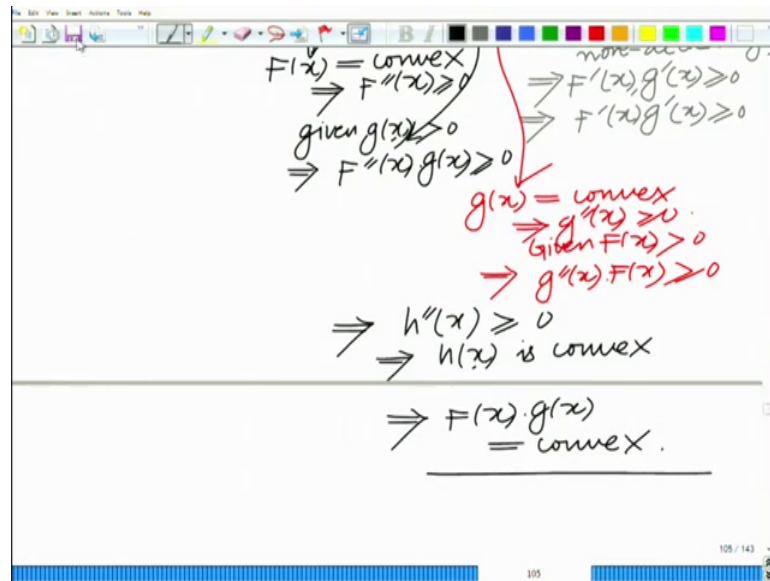 File Edit View Insert Actions Tools Help
B I
F(x) = convex
⇒ F″(x) ≥ 0
given g(x) > 0
⇒ F″(x).g(x) ≥ 0
⇒ F′(x), g′(x) ≥ 0
⇒ F′(x) g′(x) ≥ 0
g(x) = convex
⇒ g″(x) ≥ 0.
Given F(x) > 0
⇒ g″(x).F(x) ≥ 0
⇒ h″(x) ≥ 0
⇒ h(x) is convex
⇒ F(x).g(x)
= convex.
105 / 143
105